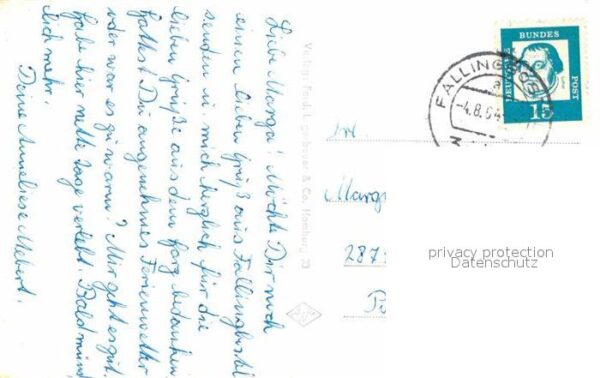 Liebe Marga! Möchte Dir noch
einen lieben Gruß aus Fallingbostel
senden u. mich herzlich für die
lieben Grüße aus dem Harz bedanken
Hattest Du angenehmes Ferienwetter
oder war es zu warm? Mir geht es gut.
habe hier nette Tage verlebt. Bald münd
lich mehr.
Deine Anneliese
Verlag: Rud. & Co. Hamburg
FALLINGBOSTEL
a
-4.8.64
DEUTSCHE
BUNDES
POST
15
Frl.
Marg
287
privacy protection
Datenschutz